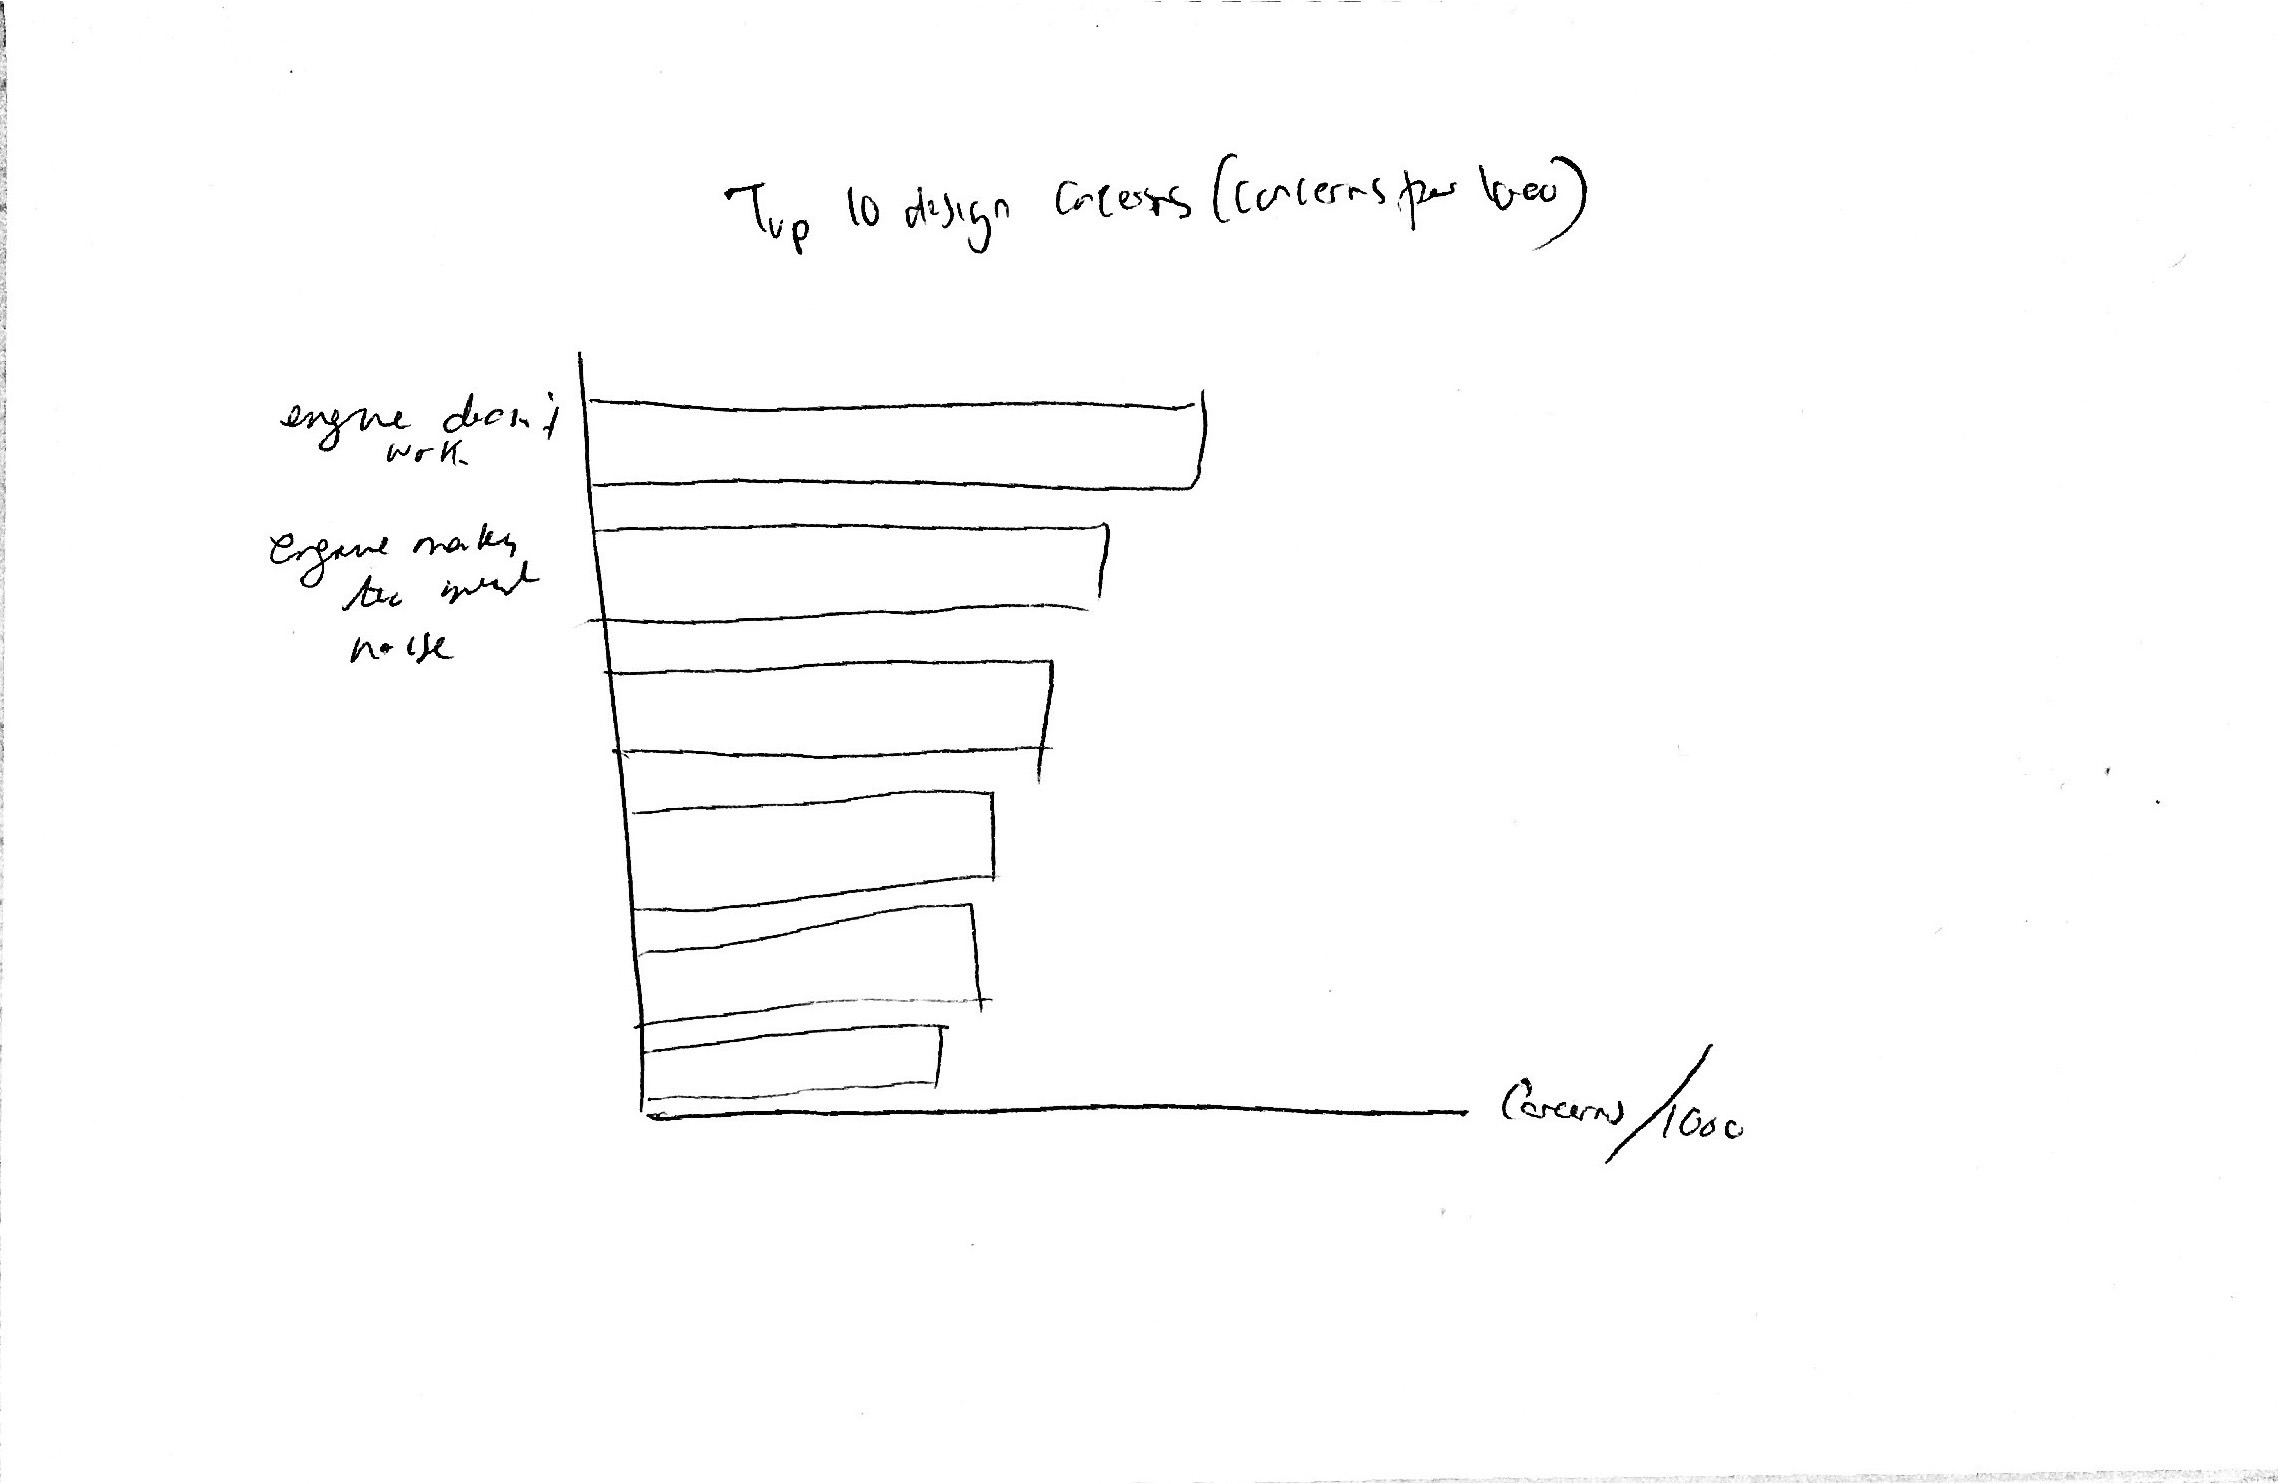 Top 10 design concerns (concerns per 1000)
engine doesn't
work
Engine makes
too much
noise
Concerns/1000